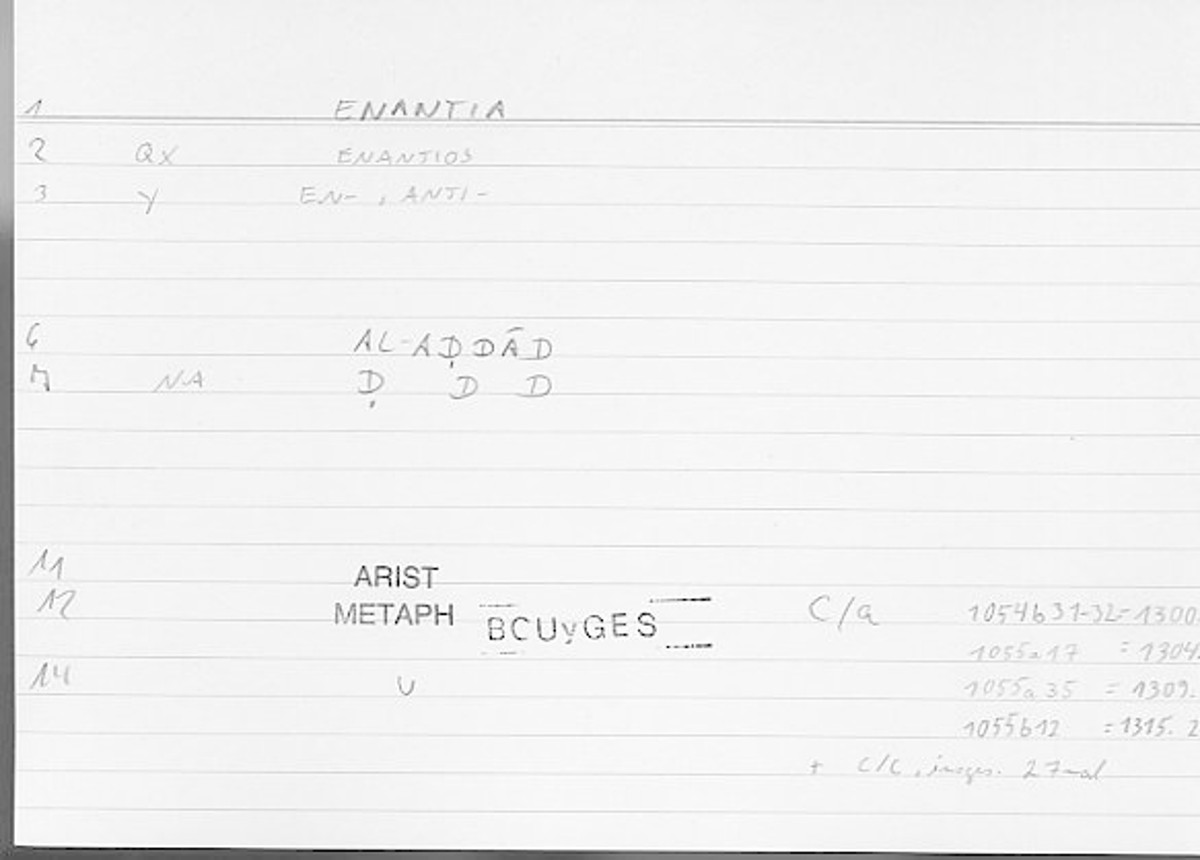 1 ENANTIA
2 QX ENANTIOS
3 Y EN- , ANTI-
6 AL-AḌDĀD
NA Ḍ D D
11 ARIST
12 METAPH BCUyGES C/a 1054b31-32=1300.
1055a17 = 1304.
14 U 1055a35 = 1309.
1055b12 = 1315. 2
+ C/C, insges. 27mal